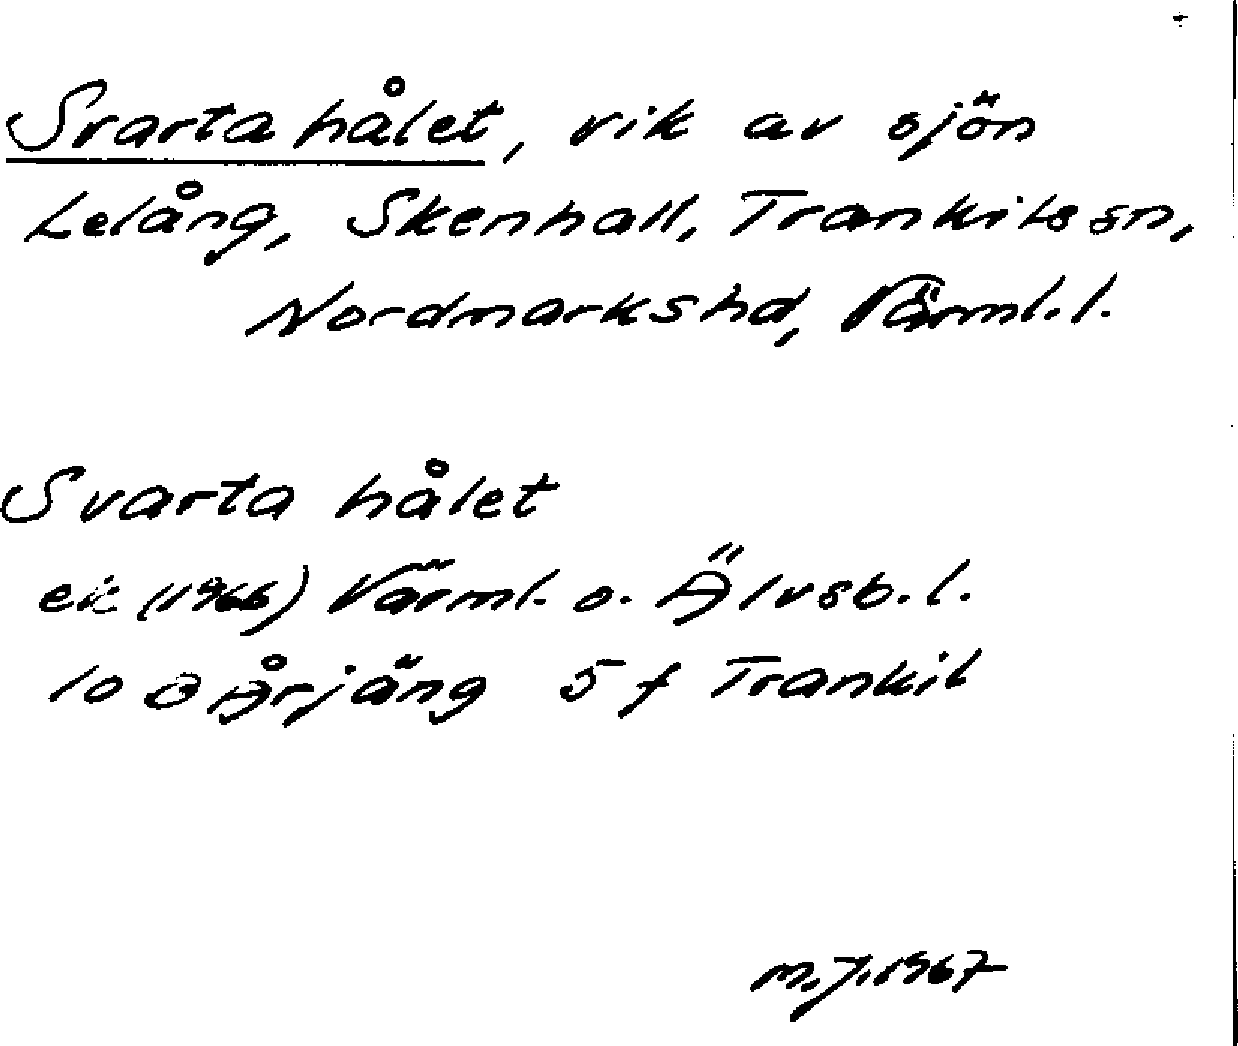 Svarta hålet, vik av sjön
Lelång, Skenhall, Trankils sn,
Nordmarks hd, Värml. l.
Svarta hålet
ek (1966) Värml. o. Älvsb. l.
10 O Årjäng 5 f Trankil
M.J. 1967